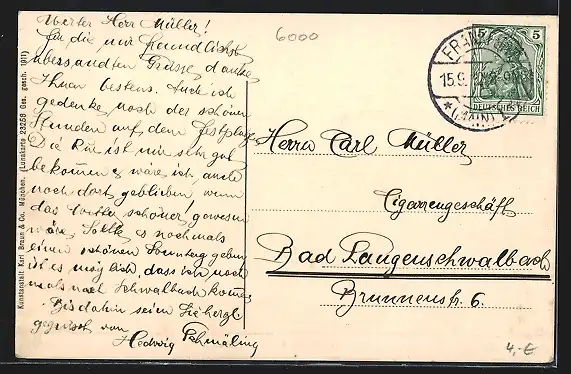 Werter Herr Müller!
Für die mir freundlichst
übersandten Grüsse, danke
Ihnen bestens. Auch ich
gedenke noch der schönen
Stunden auf dem Festplatz.
Die Kur ist mir sehr gut
bekommen & wäre ich
noch dort geblieben wenn
das Wetter schöner gewesen
wäre. Sollte es nochmals
einen schönen Sonntag geben,
ist es möglich, dass ich noch-
mals nach Schwalbach komme.
Bis dahin seien Sie herzl.
gegrüsst von
Hedwig
6000
Kunstanstalt Karl Braun & Co. München. (Lunakarte 23256 Ges. gesch. 1911)
5 5
DEUTSCHES REICH
FRANKFURT
15.9.
* (MAIN)
Herrn Carl Müller
Cigarrengeschäft
Bad Langenschwalbach
Brunnenstr. 6.
4,-€